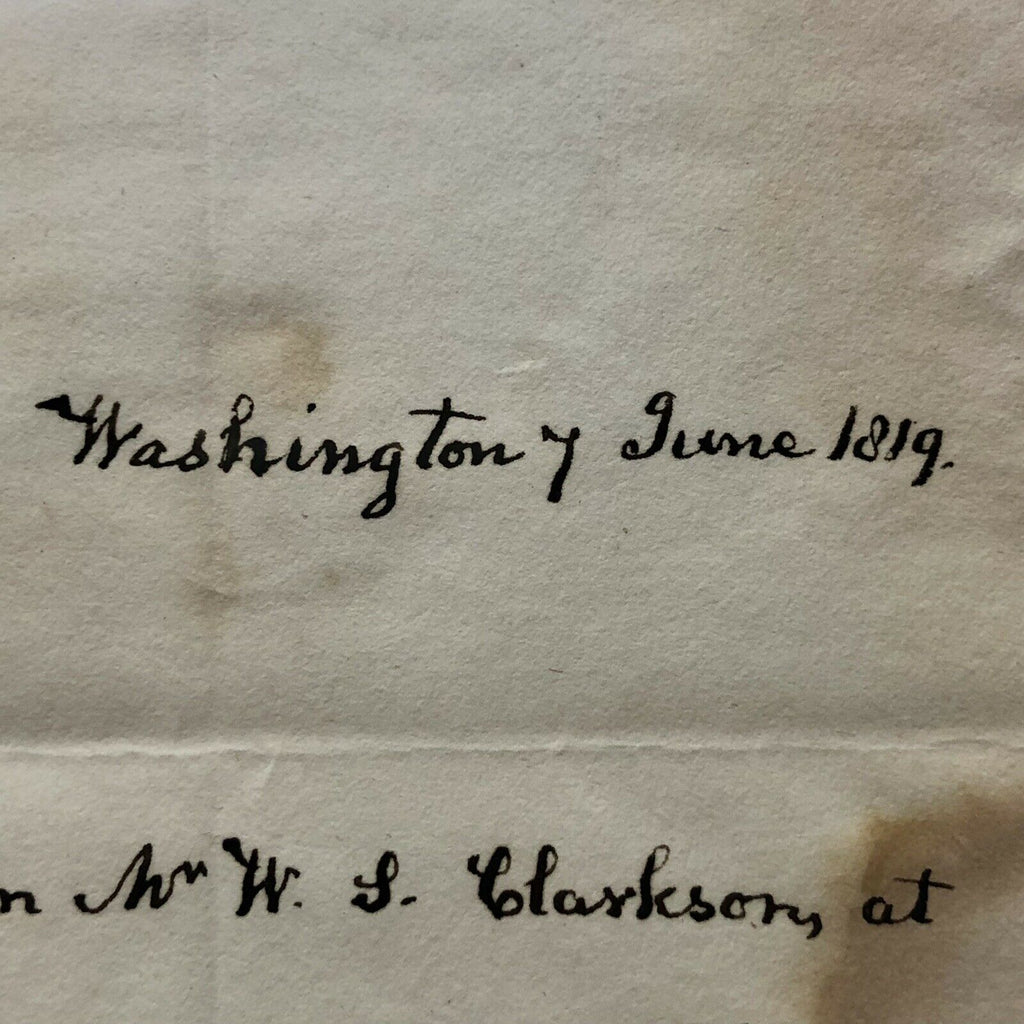 Washington 7 June 1819.
n Mr W. S. Clarkson, at